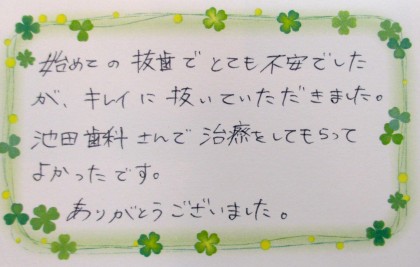 始めての抜歯でとても不安でした
が、キレイに抜いていただきました。
池田歯科さんで治療をしてもらって
よかったです。
ありがとうございました。